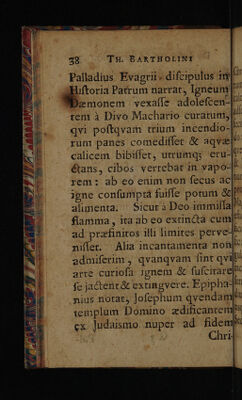 38 TH. BARTHOLINI
Palladius Evagrii discipulus in
Historia Patrum narrat, Igneum
Dæmonem vexasse adolescen-
tem à Divo Machario curatum,
qvi postqvam trium incendio-
rum panes comedisset & aqvæ
calicem bibisset, utrumq; eru-
ctans, cibos vertebat in vapo-
rem: ab eo enim non secus ac
igne consumpta fuisse potum &
alimenta. Sicut à Deo immissa
flamma, ita ab eo extincta cum
ad præfinitos illi limites perve-
nisset. Alia incantamenta non
admiserim, qvanqvam sint qvi
arte curiosa ignem & suscitare
se jactent & extingvere. Epipha-
nius notat, Josephum qvendam
templum Domino ædificantem
ex Judaismo nuper ad fidem
Chri-